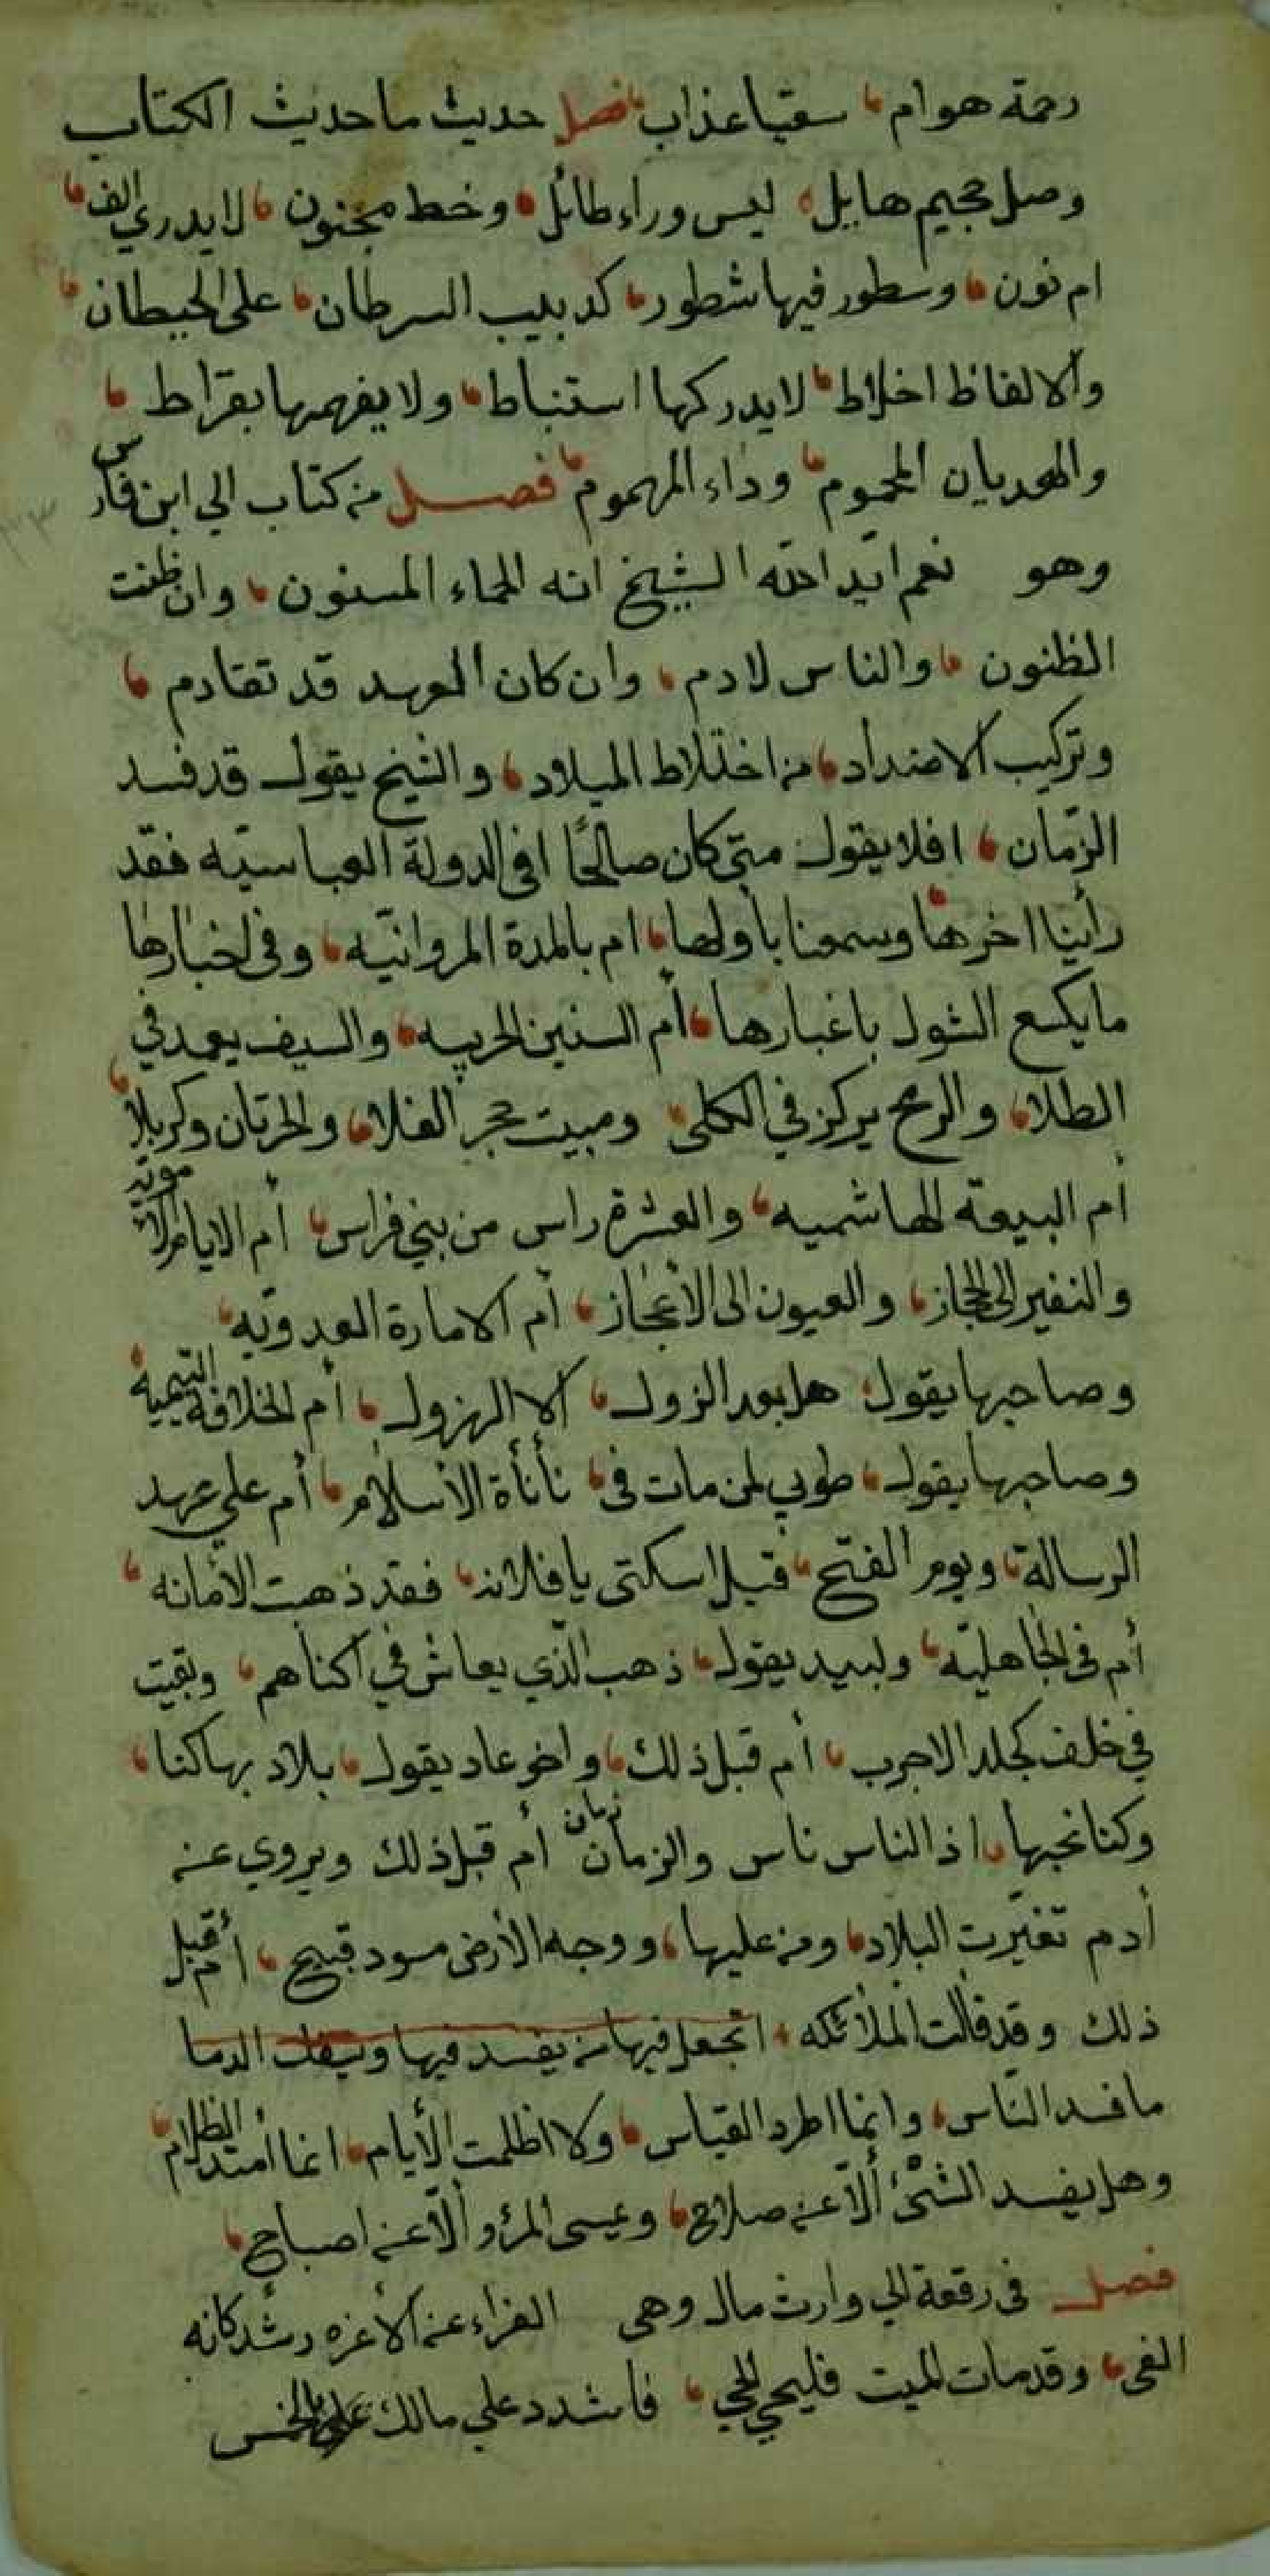 رحمة هوام سقيا عذاب فصل حديث ما حديث الكتاب
وصل مجيم هايل ليس وراءه طائل وخط مجنون لا يدري الف
ام نون وسطور فيها شطور كدبيب السرطان على الحيطان
والالفاظ اخلاط لا يدركها استنباط ولا يفهمها بقراط
والهديان المحموم وداء المهموم فصل من كتاب الي ابن فارس
وهو نعم ايد الله الشيخ انه الحماء المسنون وان ظنت
الظنون والناس لادم وان كان العهد قد تقادم
وتركيب الاضداد من اختلاط الميلاد والشيخ يقول قد فسد
الزمان افلا يقول متى كان صالحًا افي الدولة العباسيه فقد
رأينا اخرها وسمعنا باولها ام بالمدة المروانيه وفي اخبارها
ما يكسع الشول باغبارها أم السنين الحربيه والسيف يعمد في
الطلا والرمح يركز في الكلى ومبيت حجر الفلا والحرتان وكربلا
أم البيعة الهاشميه والعشرة راس من بني فراس أم الايام الامويه
والنفير الى الحجاز والعيون الى الأعجاز أم الامارة العدويه
وصاحبها يقول هل بعد الزول الا الهزول أم الخلافة التيميه
وصاحبها يقول طوبي لمن مات في نأنأة الاسلام أم علي عهد
الرسالة ويوم الفتح قيل اسكتى يا فلانه فقد ذهبت الأمانه
أم في الجاهليه ولبيد يقول ذهب الذي يعاش في اكنافهم وبقيت
في خلف كجلد الاجرب أم قبل ذلك واخو عاد يقول بلاد بها كنا
وكنا نحبها اذ الناس ناس والزمان زمان أم قبل ذلك ويروي عن
أدم تغيرت البلاد ومن عليها ووجه الأرض مسود قبيح أم قبل
ذلك وقد قالت الملائكه اتجعل فيها من يفسد فيها ويسفك الدما
ما فسد الناس وانما اطرد القياس ولا اظلمت الأيام انما امتد الظلام
وهل يفسد الشئ ألا عن صلاح ويمسى المرؤ والا عن اصباح
فصل في رقعة الي وارث مال وهى العزاء عن الأعزه رشد كانه
الغى وقد مات الميت فليحي الحي فأشدد علي مالك بالخمس